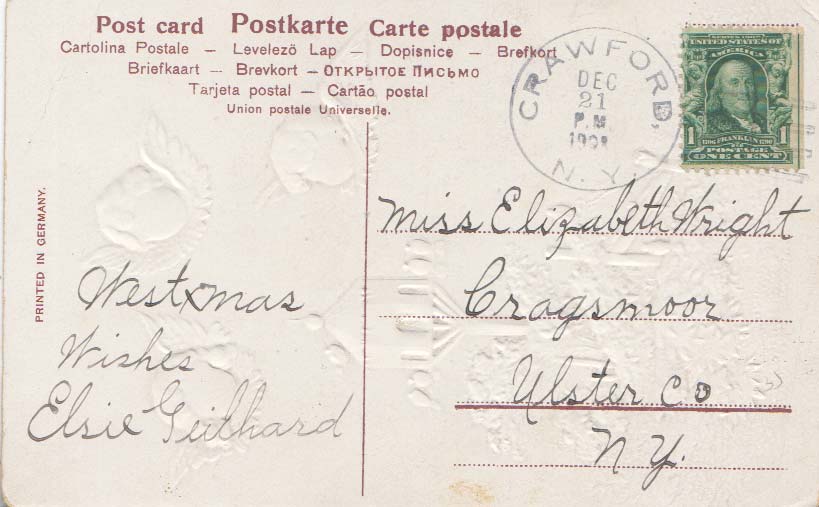 Post card Postkarte Carte postale
Cartolina Postale – Levelező Lap – Dopisnice – Brefkort
Briefkaart – Brevkort – Открытое Письмо
Tarjeta postal – Cartão postal
Union postale Universelle.
CRAWFORD,
DEC
21
P.M
N.Y.
SERIES 1902
UNITED STATES OF
AMERICA
1 1
1706 FRANKLIN 1790
POSTAGE
ONE CENT
PRINTED IN GERMANY.
West Xmas
Wishes
Elsie
Miss Elizabeth Wright
Cragsmoor
Ulster Co
NY.